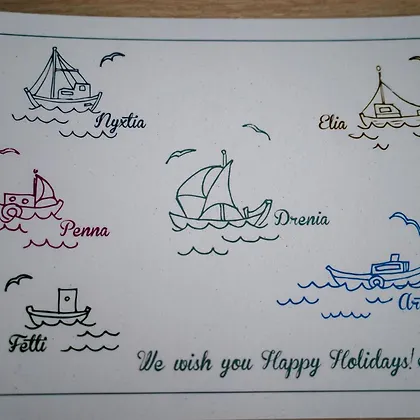 Nyxtia
Elia
Penna
Drenia
Fetti
We wish you Happy Holidays!